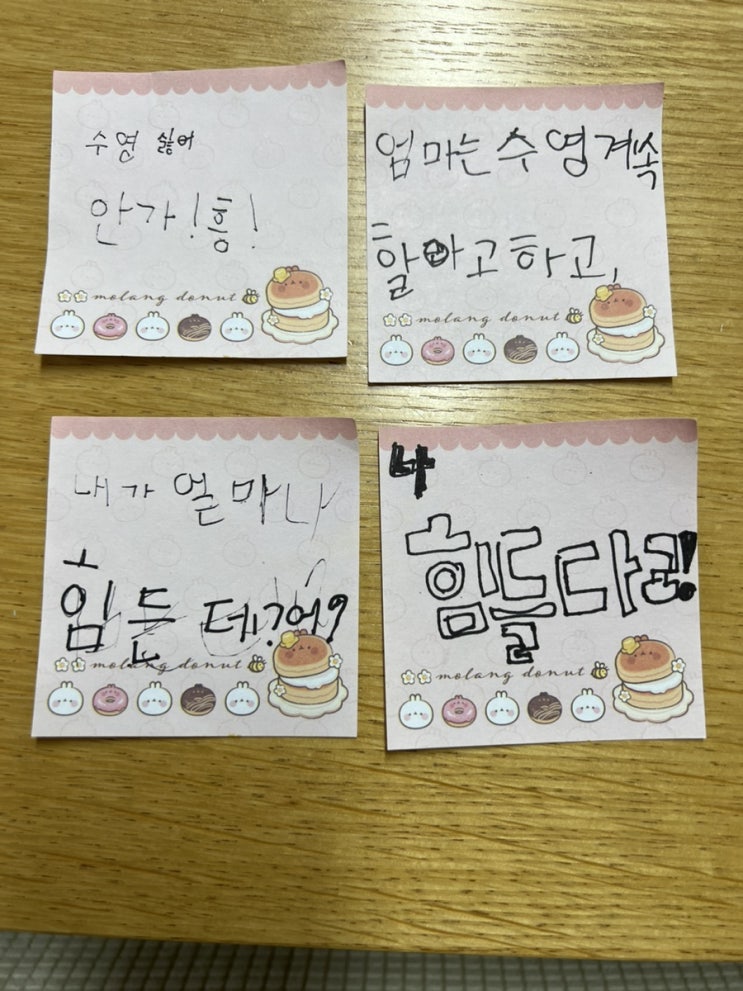 수영 싫어
안가!흥!
molang donut
엄마는 수영 계속
할아고 하고,
molang donut
내가 얼마나
힘든데!?어?
molang donut
나
힘들다고!
molang donut